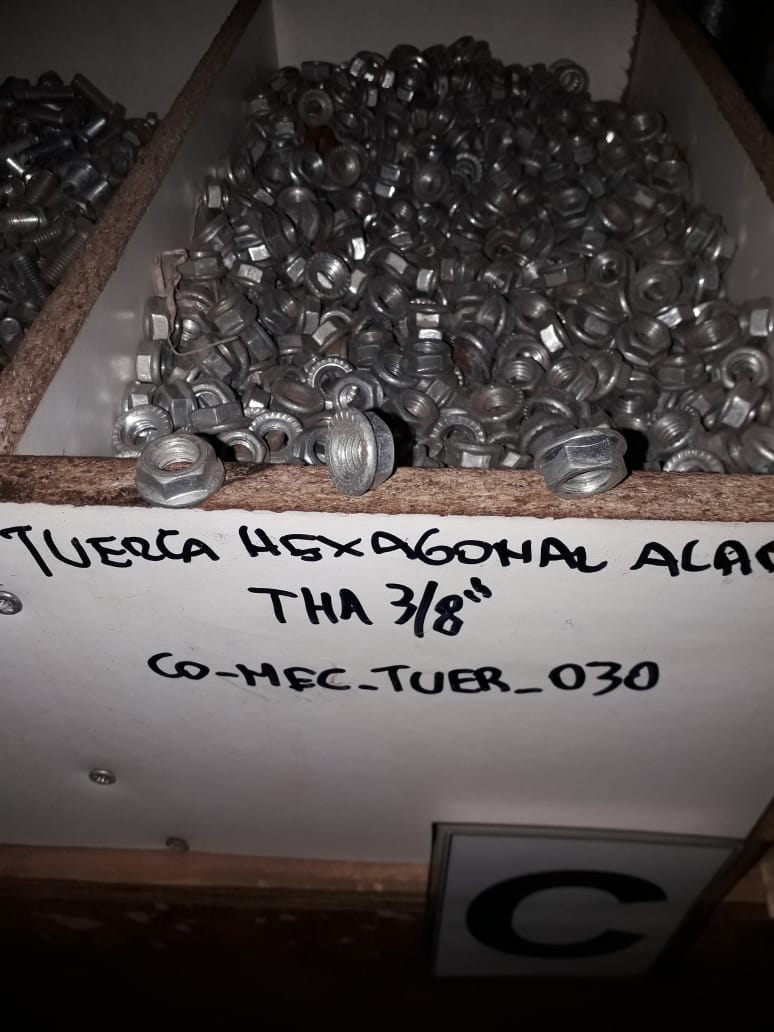 TUERCA HEXAGONAL ALA
THA 3/8"
CO-MEC-TUER_030
C